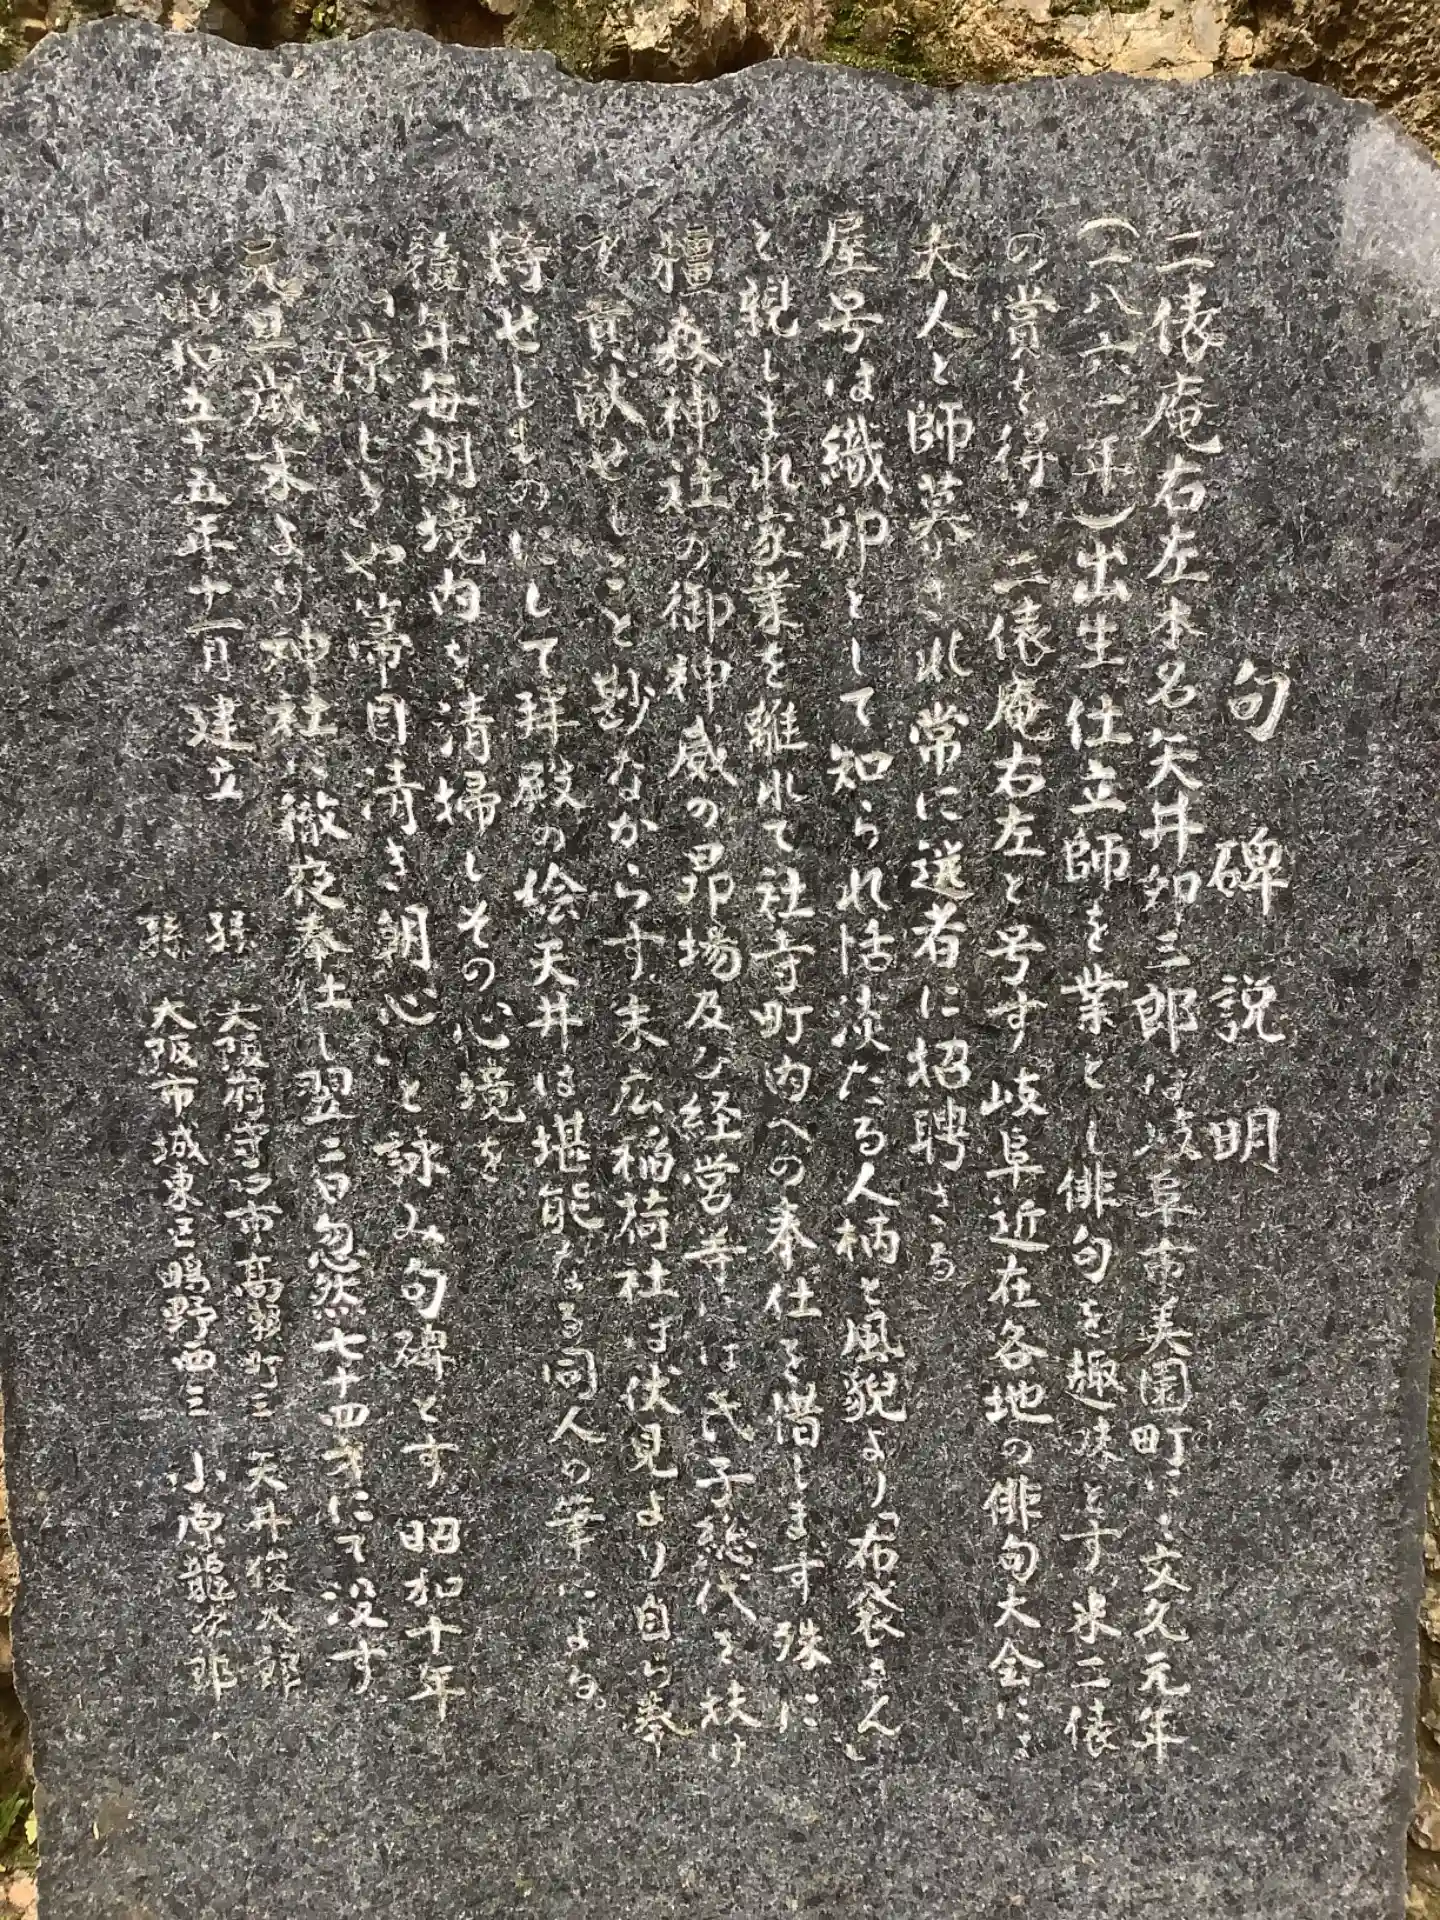 句碑説明
二俵庵右左本名矢井卯三郎は岐阜市美園町に文久元年
(一八六一年)出生仕立師を業とし俳句を趣味とす 米二俵
の賞を得て二俵庵右左と号す 岐阜近在各地の俳句大会に
大人と師慕され常に選者に招聘さる
屋号は織卯として知られ恬淡たる人柄と風貌より布袋さんと
と親しまれ家業を離れて社寺町内への奉仕を惜します 殊に
橿森神社の御神威の昂場及び経営等には氏子総代を扶け
て貢献せしこと尠なからす 末広稲荷社は伏見より自ら奉
持せしものにして拝殿の絵天井は堪能なる同人の筆による。
後年毎朝境内を清掃しその心境を
凉しらや箒目清き朝心 と詠み句碑とす 昭和十年
元旦歳末より神社に徹夜奉仕し翌二日忽然七十四才にて没す
昭和五十五年十一月建立
孫 大阪府守口市高瀬町三 矢井俊八郎
孫 大阪市城東区鴫野西三 小原龍次郎